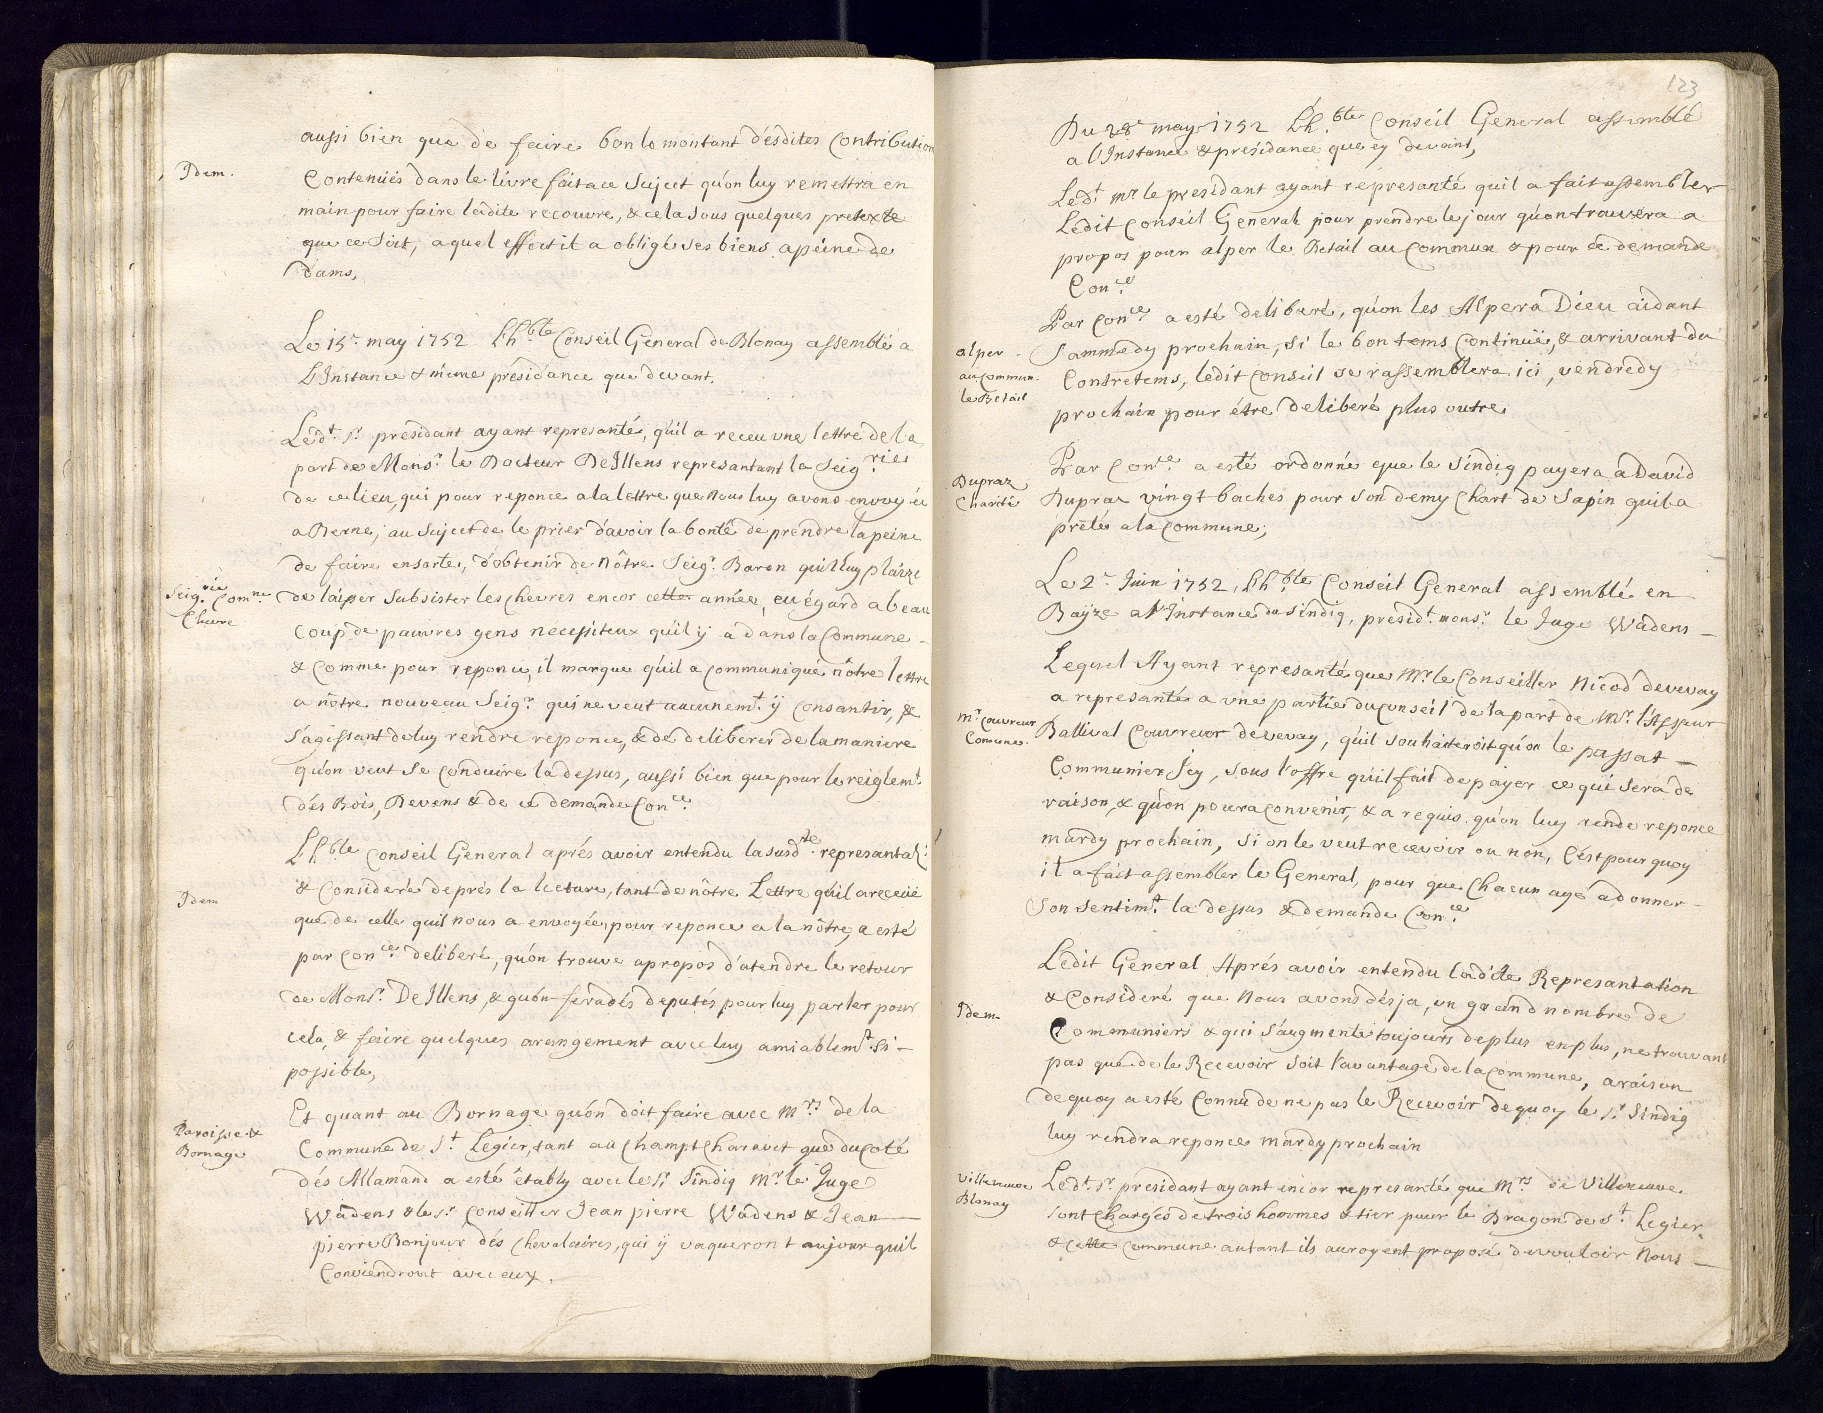 aussi bien que de faire bon le montant désdites Contribution
Idem.
Contenües dans le livre fait a ce Suject qu'on luy remettra en
main pour faire ladite recouvre, & cela sous quelques pretexte
que ce soit, a quel effect il a obligé ses biens a peine de
dams,
Le 15e. may 1752 Lh.ble Conseil General de Blonay assemblé a
L'Instance & même présidance que devant.
Léd.t Sr. présidant ayant represanté, qu'il a receu une lettre de la
part de Mons.r le Docteur DeIllens represantant la Seig.rie
de ce lieu, qui pour reponce a la lettre que Nous luy avons envoyée
a Berne, au Suject de le prier d'avoir la bonté de prendre la peine
de faire ensorte, d'obtenir de Nôtre Seig.r Baron qu'il luy plaize
Seig.rie Com.ne
Chevre
de laisser Subsister les Chevres encor cette année, eu égard a beau
coup de pauvres gens necessiteux qu'il ÿ a dans la Commune
& Comme pour reponce, il marque qu'il a communiqué nôtre lettre
a nôtre nouveau Seig.r qui ne veut aucunem.t ÿ Consantir, &
s'agissant de luy rendre reponce, & de deliberer de la maniere
qu'on veut Se Conduire la dessus, aussi bien que pour le reiglem.t
dés Bois, Devens & de ce demande Con.ce
Lh.ble Conseil General aprés avoir entendu la susd.te represantat.
Idem
& Consideré deprés la lecture, tant de nôtre Lettre qu'il a receüe
que de celle qu'il nous a envoyée pour reponce a la nôtre, a esté
par Con.ce deliberé, qu'on trouve apropos d'atendre le retour
de Mons.r DeIllens, & qu'on fera dés deputés pour luy parler pour
cela, & faire quelques arangement avec luy amiablem.t si
possible,
Paroisse &
Bornage
Et quant au Bornage qu'on doit faire avec M.rs de la
Commune de S.t Legier, tant au Champt Charavet que du Coté
dés Allamand a esté établÿ avec le Sr. Sindiq Mr. le Juge
Wadens & le Sr. Conseiller Jean pierre Wadens & Jean
pierre Bonjour dés Chevalaires, qui ÿ vaqueront au jour qu'il
Conviendront avec eux.
123
Du 28e may 1752 Lh.ble Conseil General assemblé
a l'Instance & présidance que cy devant,
Léd.t mr. le presidant ayant represanté qu'il a fait assembler
Lédit Conseil General pour prendre le jour qu'on trouvera a
propos pour alper le Betail au Commun & pour ce demande
Con.ce
Par Con.ce a esté deliberé, qu'on les Alpera Dieu aidant
alper
au Commun.
le Betail
Sammedy prochain, si le bon tems Continüe, & arrivant du
Contretems, ledit Conseil se rassemblera ici, vendredy
prochain pour étre deliberé plus outre
Dupraz
Charité
Par Con.ce a esté ordonné que le Sindiq payera a David
Dupraz vingt baches pour son demy Chart de Sapin qu'il a
prété a la Commune,
Le 2e. Juin 1752, Lh.ble Conseil General assemblé en
Bayze a l'Instance du Sindiq, présid.t mons.r le Juge Wadens
Lequel Ayant represanté que Mr. le Conseiller Nicod de vevay
a represanté a une partie du Conseil de la part de Mr. l'Assseur
Mr. Couvreur
Comune.
Ballival Couvreur de vevay, qu'il souhaiteroit qu'on le passat
Communier Icy, sous l'offre qu'il fait de payer ce qui sera de
raison, & qu'on poura convenir, & a requis qu'on luy rende reponce
mardy prochain, si on le veut recevoir ou non, C'est pourquoy
il a fait assembler le General, pour que Chacun aye a donner
Son Sentim.t la dessus & demande Con.ce
Lédit General Aprés avoir entendu ladite Represantation
Idem
& Consideré que Nous avons désja, un grand nombre de
Communiers & qui s'augmente toujours de plus en plus, ne trouvant
pas que de le Recevoir soit l'avantage de la Commune, a raison
dequoy a esté Connû de ne pas le Recevoir dequoy le Sr. Sindiq
luy rendra reponce mardy prochain
Villeneuve
Blonay
Léd.t Sr. presidant ayant encor represanté que M.rs de Villeneuve
sont Chargés de trois hommes & tier pour le Dragon de S.t Legier
& cette Commune autant ils auroyent proposé de vouloir Nous